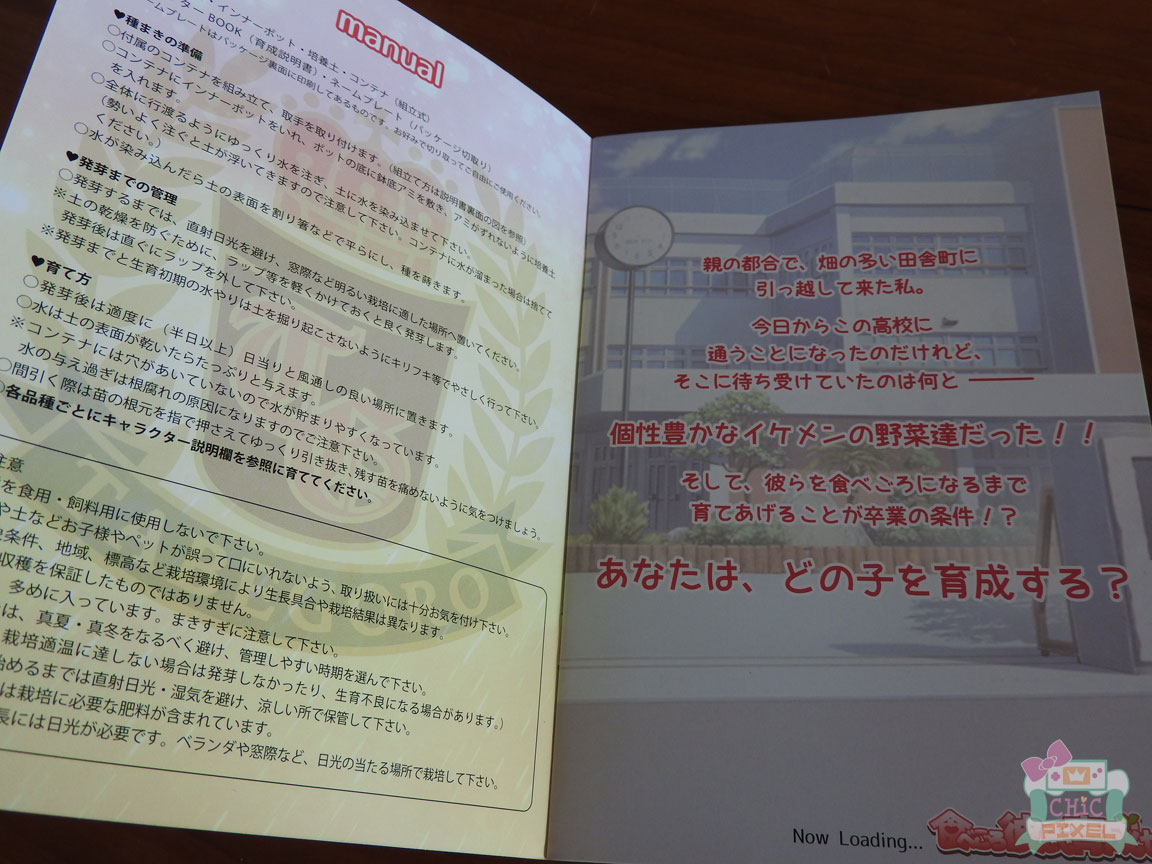 manual
・インナーポット・培養土・コンテナ（組立式）
ター BOOK（育成説明書）・ネームプレート（パッケージ切取り）
ームプレートはパッケージ裏面に印刷してあるものです。お好みで切り取ってご自由にご使用ください。
♥種まきの準備
○付属のコンテナを組み立て、取手を取り付けます。（組立て方は説明書裏面の図を参照）
○コンテナにインナーポットをいれ、ポットの底に鉢底アミを敷き、アミがずれないように培養土
を入れます。
○全体に行渡るようにゆっくり水を注ぎ、土に水を染み込ませて下さい。
（勢いよく注ぐと土が浮いてきますので注意して下さい。コンテナに水が溜まった場合は捨てて
ください。）
○水が染み込んだら土の表面を割り箸などで平らにし、種を蒔きます。
♥発芽までの管理
○発芽するまでは、直射日光を避け、窓際など明るい栽培に適した場所へ置いてください。
※土の乾燥を防ぐために、ラップ等を軽くかけておくと良く発芽します。
発芽後は直ぐにラップを外して下さい。
※発芽までと生育初期の水やりは土を掘り起こさないようにキリフキ等でやさしく行って下さい。
♥育て方
○発芽後は適度に（半日以上）日当りと風通しの良い場所に置きます。
○水は土の表面が乾いたらたっぷりと与えます。
※コンテナには穴があいていないので水が貯まりやすくなっています。
水の与え過ぎは根腐れの原因になりますのでご注意下さい。
○間引く際は苗の根元を指で押さえてゆっくり引き抜き、残す苗を痛めないように気をつけましょう。
○各品種ごとにキャラクター説明欄を参照に育ててください。
注意
を食用・飼料用に使用しないで下さい。
や土などお子様やペットが誤って口にいれないよう、取り扱いには十分お気を付け下さい。
条件、地域、標高など栽培環境により生長具合や栽培結果は異なります。
収穫を保証したものではありません。
多めに入っています。まきすぎに注意して下さい。
は、真夏・真冬をなるべく避け、管理しやすい時期を選んで下さい。
栽培適温に達しない場合は発芽しなかったり、生育不良になる場合があります。）
始めるまでは直射日光・湿気を避け、涼しい所で保管して下さい。
は栽培に必要な肥料が含まれています。
長には日光が必要です。ベランダや窓際など、日光の当たる場所で栽培して下さい。
親の都合で、畑の多い田舎町に
引っ越して来た私。
今日からこの高校に
通うことになったのだけれど、
そこに待ち受けていたのは何と ———
個性豊かなイケメンの野菜達だった！！
そして、彼らを食べごろになるまで
育てあげることが卒業の条件！？
あなたは、どの子を育成する？
Now Loading...
CHiC
PIXEL